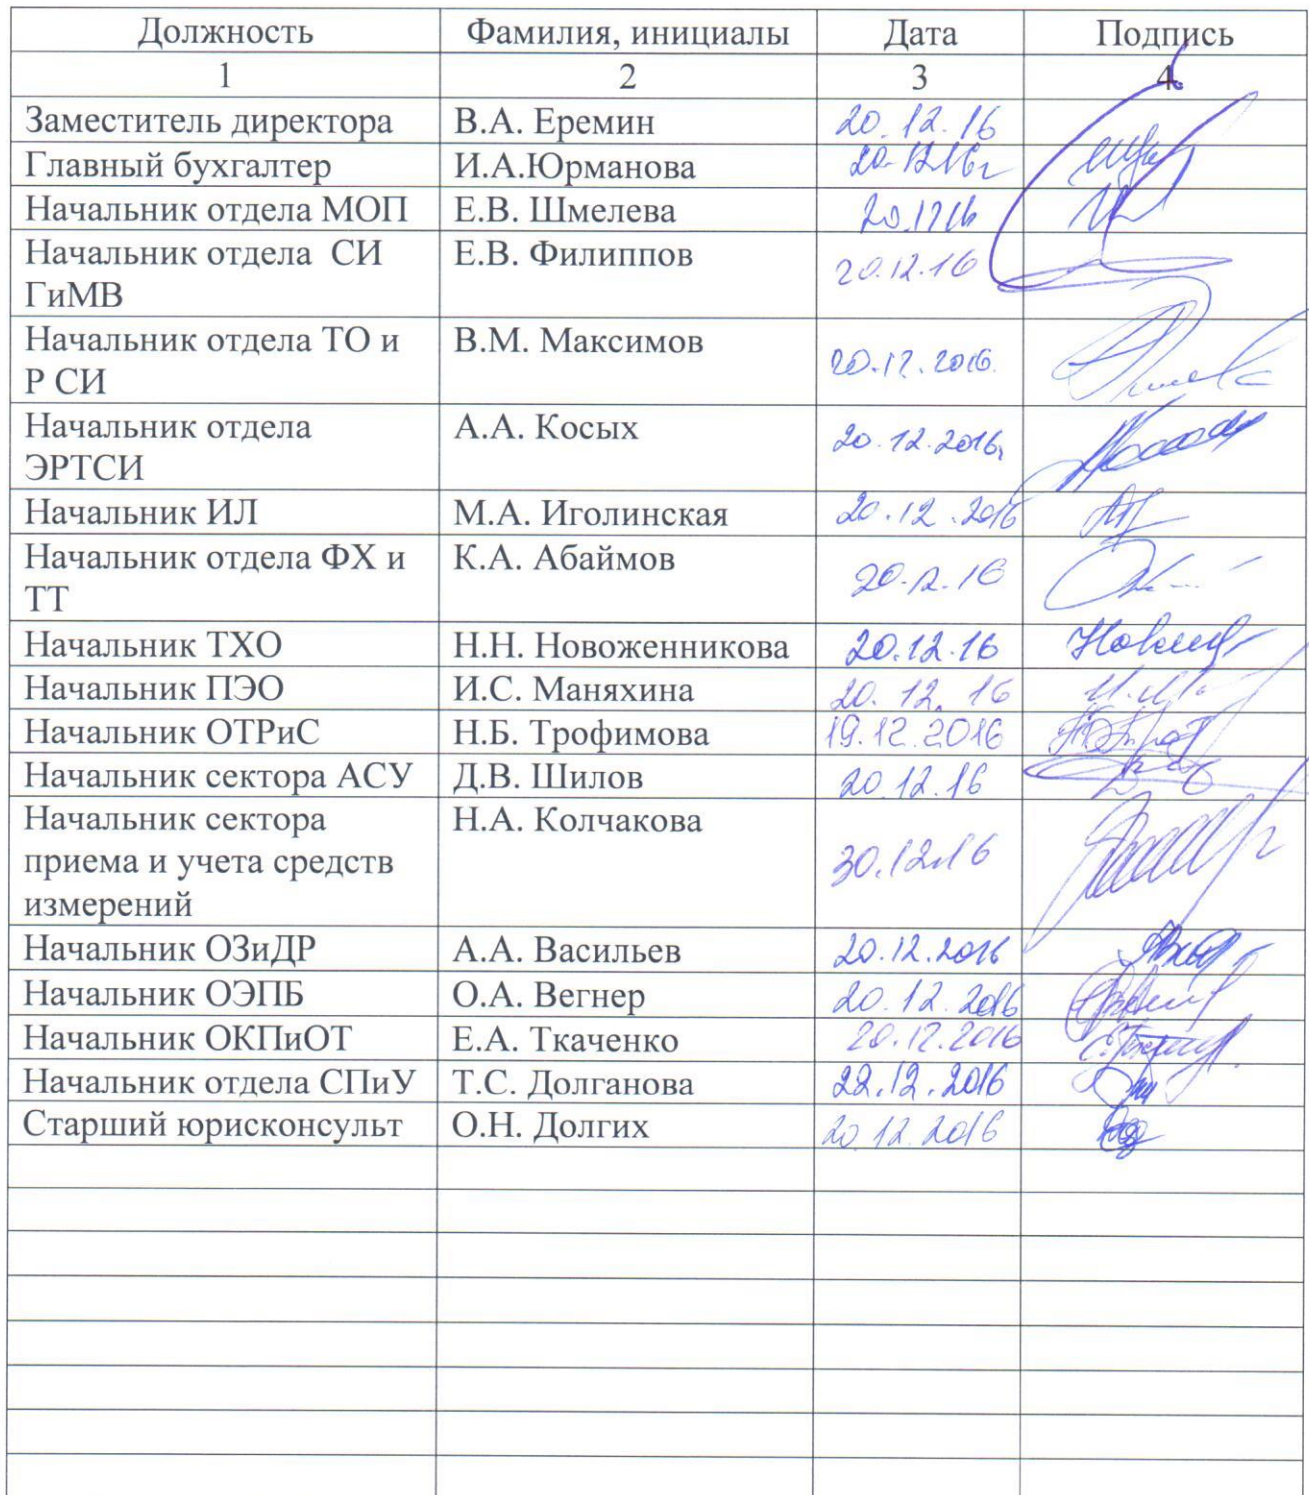 Должность Фамилия, инициалы Дата Подпись
1 2 3 4
Заместитель директора В.А. Еремин 20.12.16
Главный бухгалтер И.А.Юрманова 20.12.16г
Начальник отдела МОП Е.В. Шмелева 20.12.16
Начальник отдела СИ Е.В. Филиппов 20.12.16
ГиМВ
Начальник отдела ТО и В.М. Максимов 20.12.2016.
Р СИ
Начальник отдела А.А. Косых 20.12.2016г
ЭРТСИ
Начальник ИЛ М.А. Иголинская 20.12.2016
Начальник отдела ФХ и К.А. Абаймов 20.12.16
ТТ
Начальник ТХО Н.Н. Новоженникова 20.12.16
Начальник ПЭО И.С. Маняхина 20.12.16
Начальник ОТРиС Н.Б. Трофимова 19.12.2016
Начальник сектора АСУ Д.В. Шилов 20.12.16
Начальник сектора Н.А. Колчакова 30.12.16
приема и учета средств
измерений
Начальник ОЗиДР А.А. Васильев 20.12.2016
Начальник ОЭПБ О.А. Вегнер 20.12.2016
Начальник ОКПиОТ Е.А. Ткаченко 20.12.2016
Начальник отдела СПиУ Т.С. Долганова 22.12.2016
Старший юрисконсульт О.Н. Долгих 20.12.2016